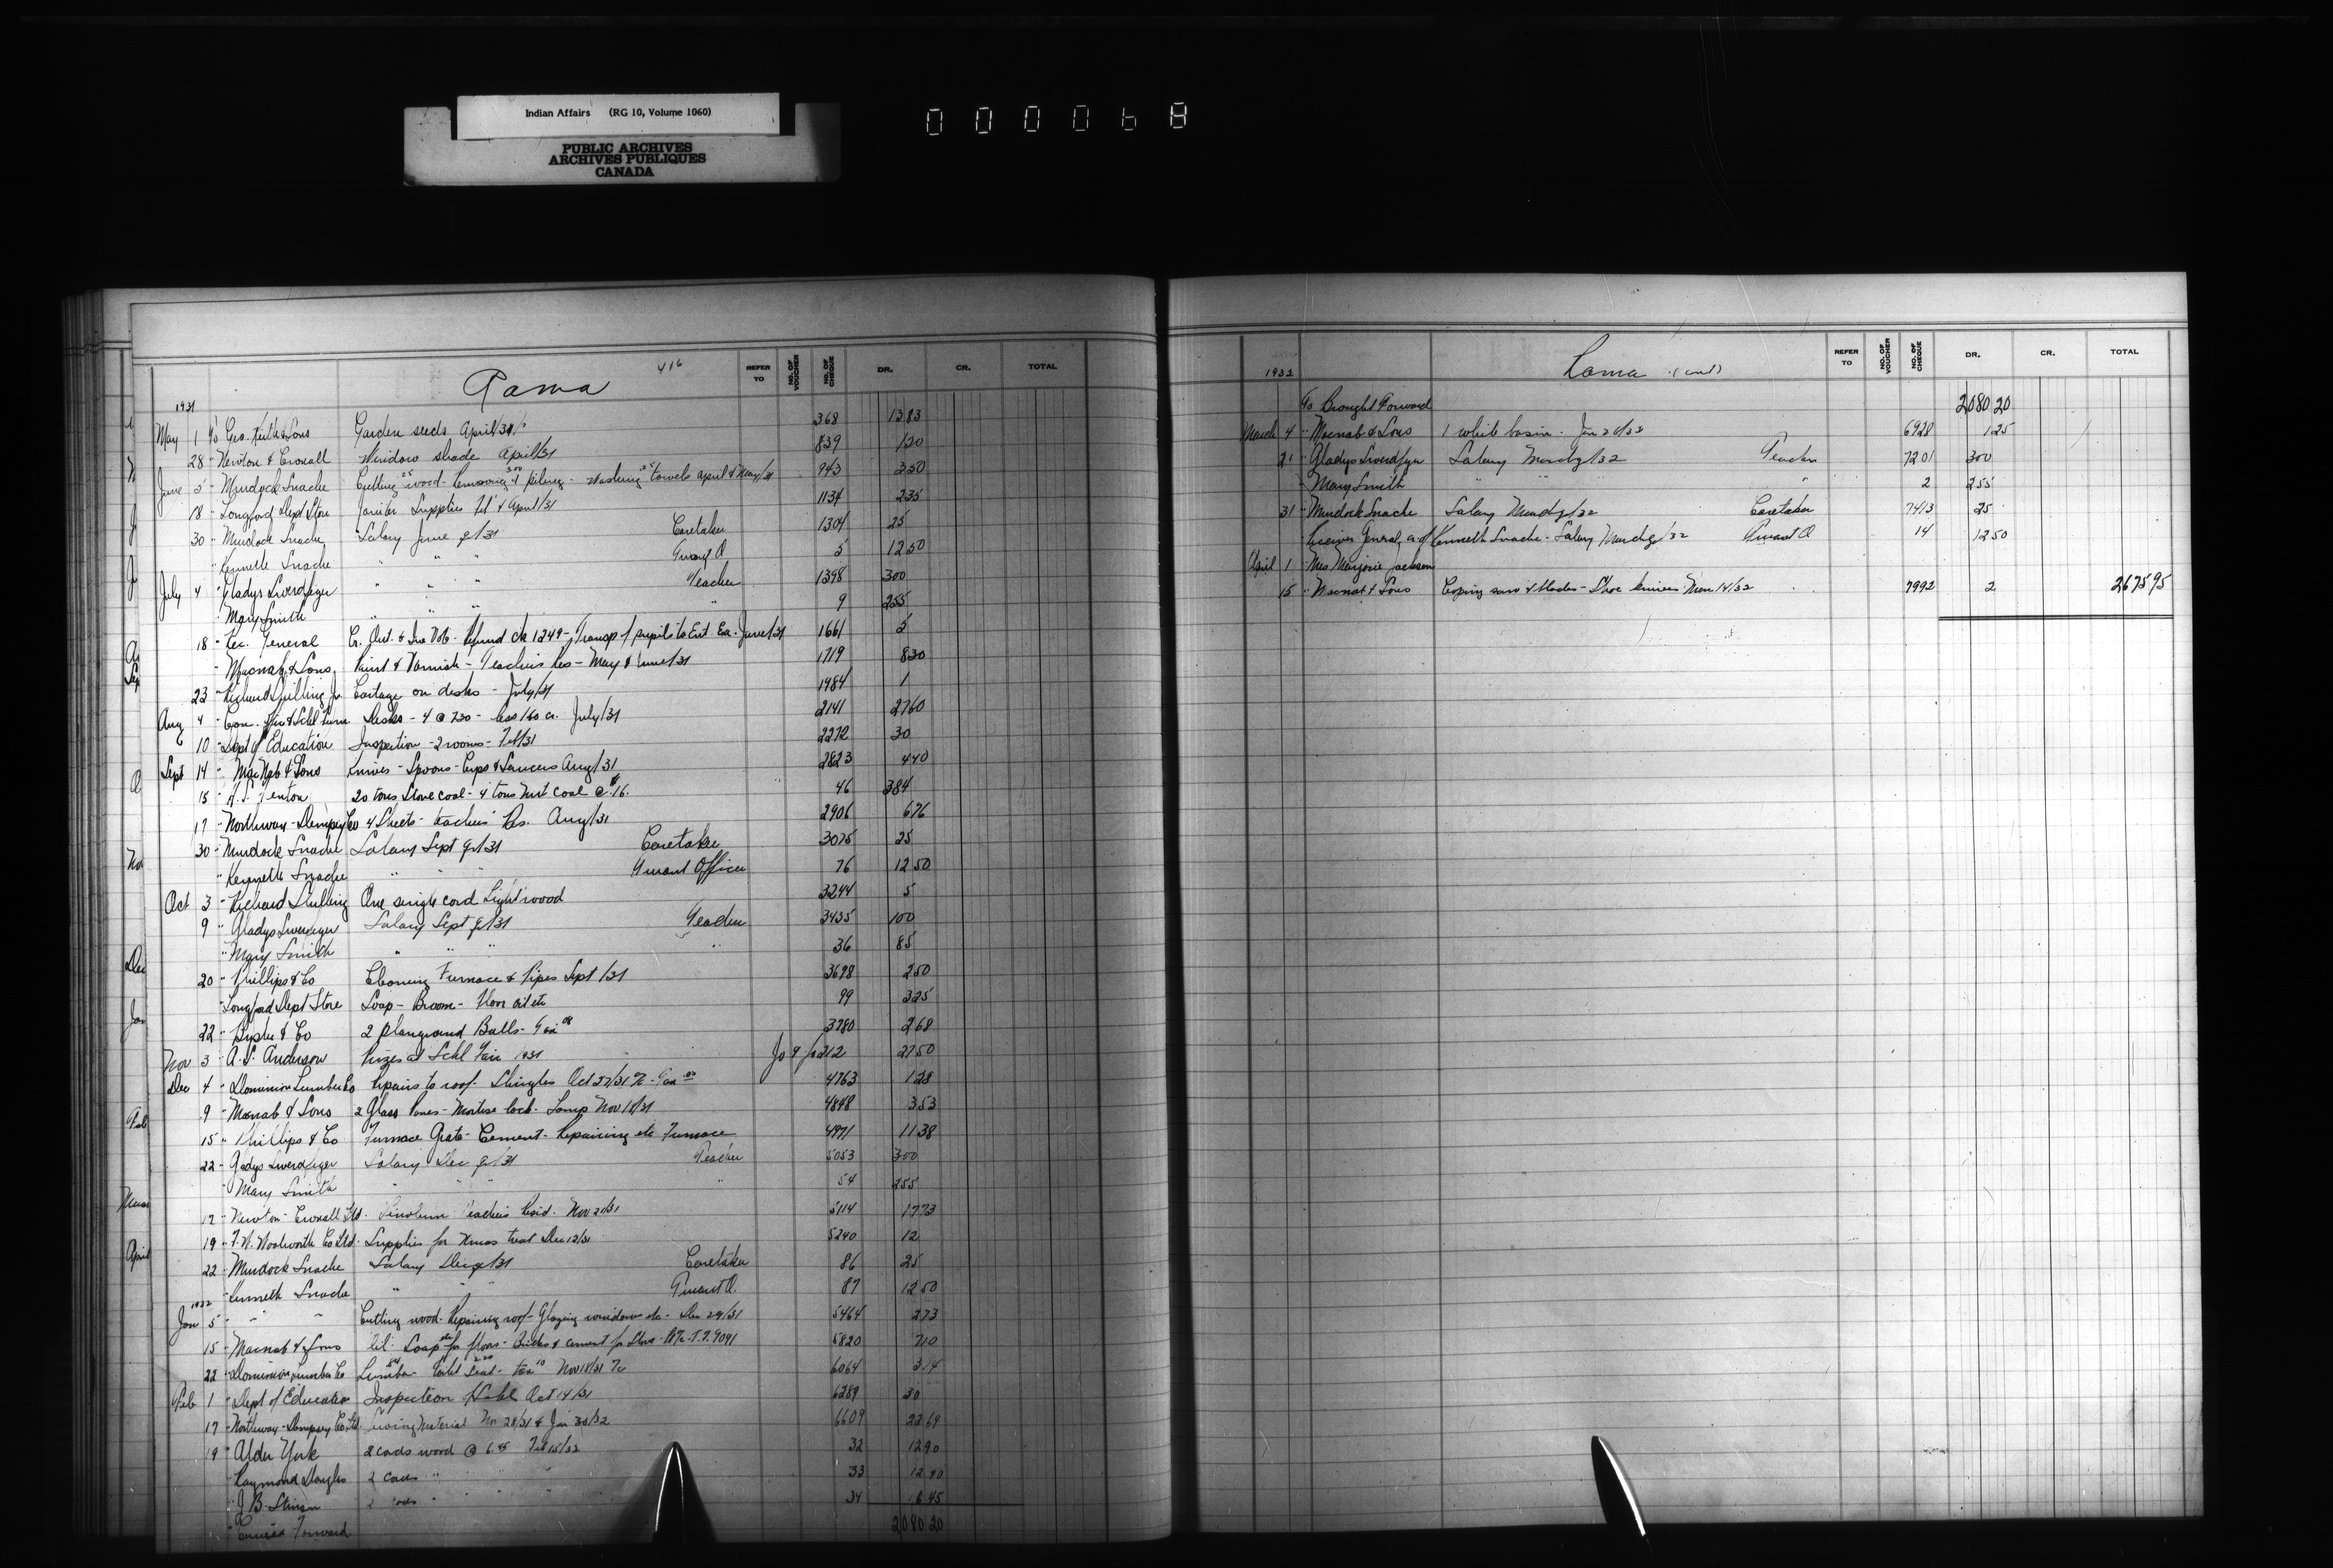 Indian Affairs (RG 10, Volume 1060)
PUBLIC ARCHIVES
ARCHIVES PUBLIQUES
CANADA
000068
Rama 416
REFER TO NO. OF VOUCHER NO. OF CHEQUE DR. CR. TOTAL
1931
May 1 To Geo. Keith & Sons Garden seeds April/31 368 13 83
28 " Newton & Croxall Window shade April/31 839 1 20
June 5 " Murdock Snache Cutting wood - Removing & piling - Washing towels April & May/31 943 3 50
18 " Longford Dept Store Janitor Supplies Feb & April/31 1134 2 35
30 " Murdock Snache Salary June qr/31 Caretaker 1304 25
" Kenneth Snache " " " Truant O 5 12 50
July 4 " Gladys " " " Teacher 1398 300
" Mary Smith " " " " 9 255
18 " Rec. General Refund ck 1249 - Transp of pupils to Ent. Ex. June/31 1661 5
" Macnab & Sons Paint & Varnish - Teachers Res - May & June/31 1719 8 30
23 " Richard Jr. Cartage on desks - July/31 1984 1
Aug 4 " Desks - 4 @ 7 30 - less 1 60 cr. July/31 2141 27 60
10 " Dept of Education Inspection - 2 rooms - Feb/31 2272 30
Sept 14 " MacNab & Sons Knives - Spoons - Cups & Saucers Aug/31 2823 4 40
15 " 20 tons Stove coal - 4 tons Nut coal @ $16. 46 384
17 " Northway-Dempsey Co 4 Sheets - teachers' Res. Aug/31 2906 6 76
30 " Murdock Snache Salary Sept qr/31 Caretaker 3075 25
" Kenneth Snache " " " Truant Officer 76 12 50
Oct 3 " Richard One single cord Lightwood 3244 5
9 " Gladys Salary Sept qr/31 Teacher 3435 100
" Mary Smith " " " " 36 85
20 " Phillips & Co Cleaning Furnace & Pipes Sept/31 3698 2 50
" Longford Dept Store Soap - Broom - Floor oil etc 99 3 25
22 " & Co 2 playground Balls - Tax 08 3780 2 68
Nov 3 " A.S. Anderson Prizes at Schl Fair 1931 212 27 50
Dec 4 " Dominion Lumber Co Repairs to roof - Shingles Oct 4763 1 28
9 " Macnab & Sons 2 Glass Panes - Mortise lock - Lamp Nov 18/31 4848 3 53
15 " Phillips & Co Furnace Grate - Cement - Repairing etc Furnace 4971 11 38
22 " Gladys Salary Dec qr/31 Teacher 5053 300
" Mary Smith " " " " 54 255
12 " Newton-Croxall Ltd. Linoleum Teachers Resid. Nov 5114 17 73
19 " F.W. Woolworth Co Ltd. Supplies for Xmas treat Dec 12/31 5240 12
22 " Murdock Snache Salary Dec qr/31 Caretaker 86 25
" Kenneth Snache " " " Truant O. 87 12 50
1932
Jan 5 " " " Cutting wood - Repairing roof - Glazing windows etc - Dec 29/31 5464 2 73
15 " Macnab & Sons Soap for floors - Bricks & cement for Stove 5820 7 10
22 " Dominion Lumber Co Lumber Toilet Seat - tax Nov 18/31 6064 3 14
Feb 1 " Dept of Education Inspection Oct 14/31 6289 30
17 " Northway-Dempsey Co Ltd. Sewing Material Nov 28/31 & Jan 30/32 6609 22 69
19 " Alder York 2 cords wood @ 6.45 Feb 15/32 32 12 90
" Raymond Douglas 2 cords " " " 33 12 90
" J.B. Stinson " " " 34 6 45
" Carried Forward 2080 20
Rama (cont)
REFER TO NO. OF VOUCHER NO. OF CHEQUE DR. CR. TOTAL
1932
To Brought Forward 2080 20
March 4 " Macnab & Sons 1 white basin - Jan 6928 1 25
21 " Gladys Salary March qr/32 Teacher 7201 300
" Mary Smith " " " " 2 255
31 " Murdock Snache Salary March qr/32 Caretaker 7413 25
" Receiver General, a/c of Kenneth Snache - Salary March qr/32 Truant O 14 12 50
April 1 " Mrs Marjorie
15 " Macnab & Sons Coping saw & blades - Shoe knives Mar 14/32 7992 2 2675 95